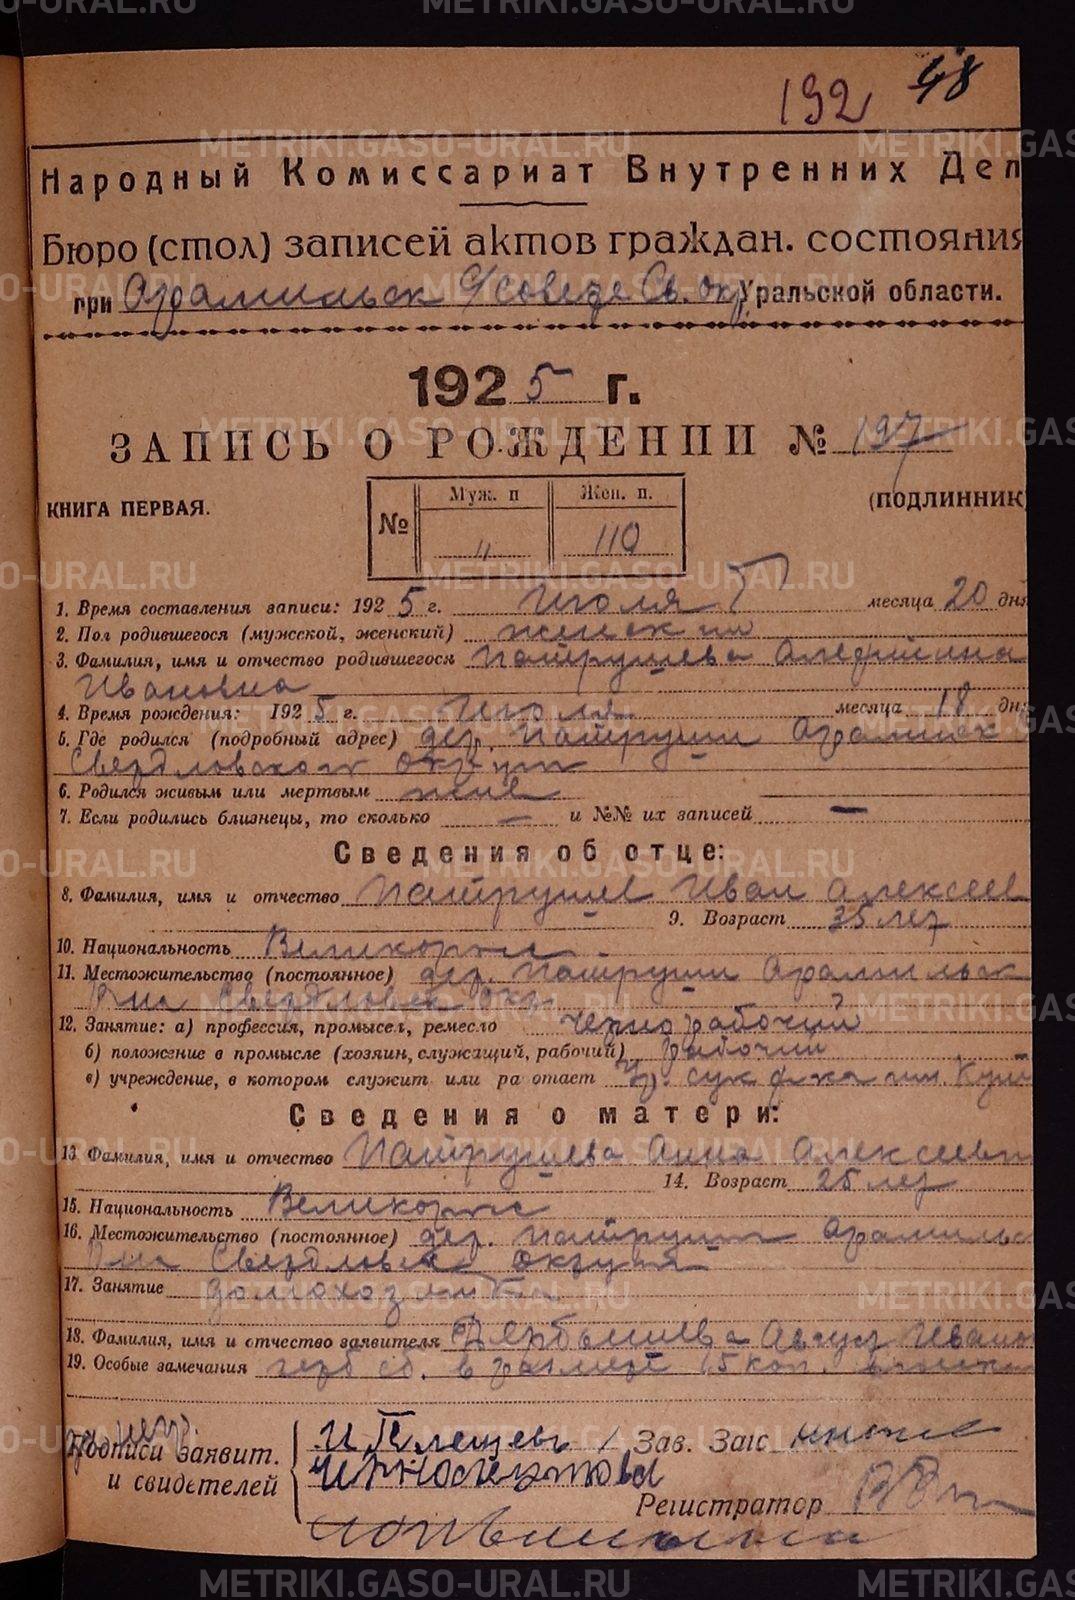 192 48
Народный Комиссариат Внутренних Дел
Бюро (стол) записей актов граждан. состояния
при Арамильск С/совете Св. Окр Уральской области.
1925 г.
ЗАПИСЬ О РОЖДЕНИИ № 197
КНИГА ПЕРВАЯ.
(ПОДЛИННИК)
№ Муж. п Жен. п.
" 110
1. Время составления записи: 1925 г. Июля месяца 20 дня
2. Пол родившегося (мужской, женский) женский
3. Фамилия, имя и отчество родившегося Патрушева Алефтина
Ивановна
4. Время рождения: 1925 г. Июля месяца 18 дня
5. Где родился (подробный адрес) дер. Патруши Арамильск
Свердловского округа
6. Родился живым или мертвым жив
7. Если родились близнецы, то сколько — и №№ их записей —
Сведения об отце:
8. Фамилия, имя и отчество Патрушев Иван Алексеев
9. Возраст 35 лет
10. Национальность Великорос
11. Местожительство (постоянное) дер. Патруши Арамильск
Р-на Свердловск окр.
12. Занятие: а) профессия, промысел, ремесло чернорабочий
б) положение в промысле (хозяин, служащий, рабочий) рабочий
в) учреждение, в котором служит или ра отает сук ф-ка им.
Сведения о матери:
13 Фамилия, имя и отчество Патрушева Анна Алексеевн
14. Возраст 25 лет
15. Национальность Великорос
16. Местожительство (постоянное) дер. Патруши Арамильс
Р-на Свердловск округа
17. Занятие домохозяйка
18. Фамилия, имя и отчество заявителя Дербышева Август Иванов
19. Особые замечания герб сб. в размере 15 коп.
Подписи заявит.
и свидетелей
Зав. Загс
Регистратор
METRIKI.GASO-URAL.RU